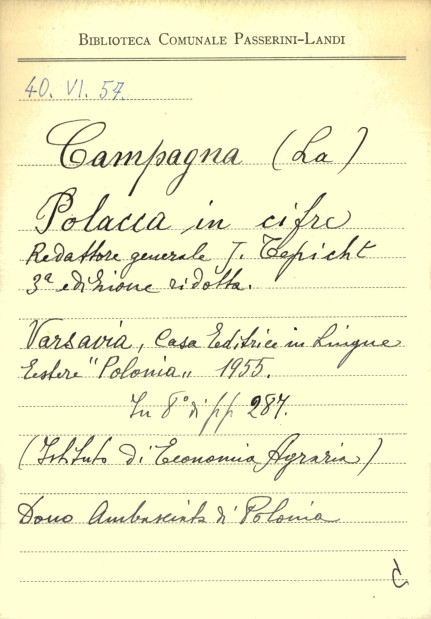 BIBLIOTECA COMUNALE PASSERINI-LANDI
40. VI. 57.
Campagna (La)
Polacca in cifre
Redattore generale J. Tepicht
3ª edizione ridotta.
Varsavia, Casa Editrice in Lingue
Estere "Polonia" 1955.
In 8° di pp 287.
(Istituto di Economia Agraria)
Dono Ambasciata di Polonia